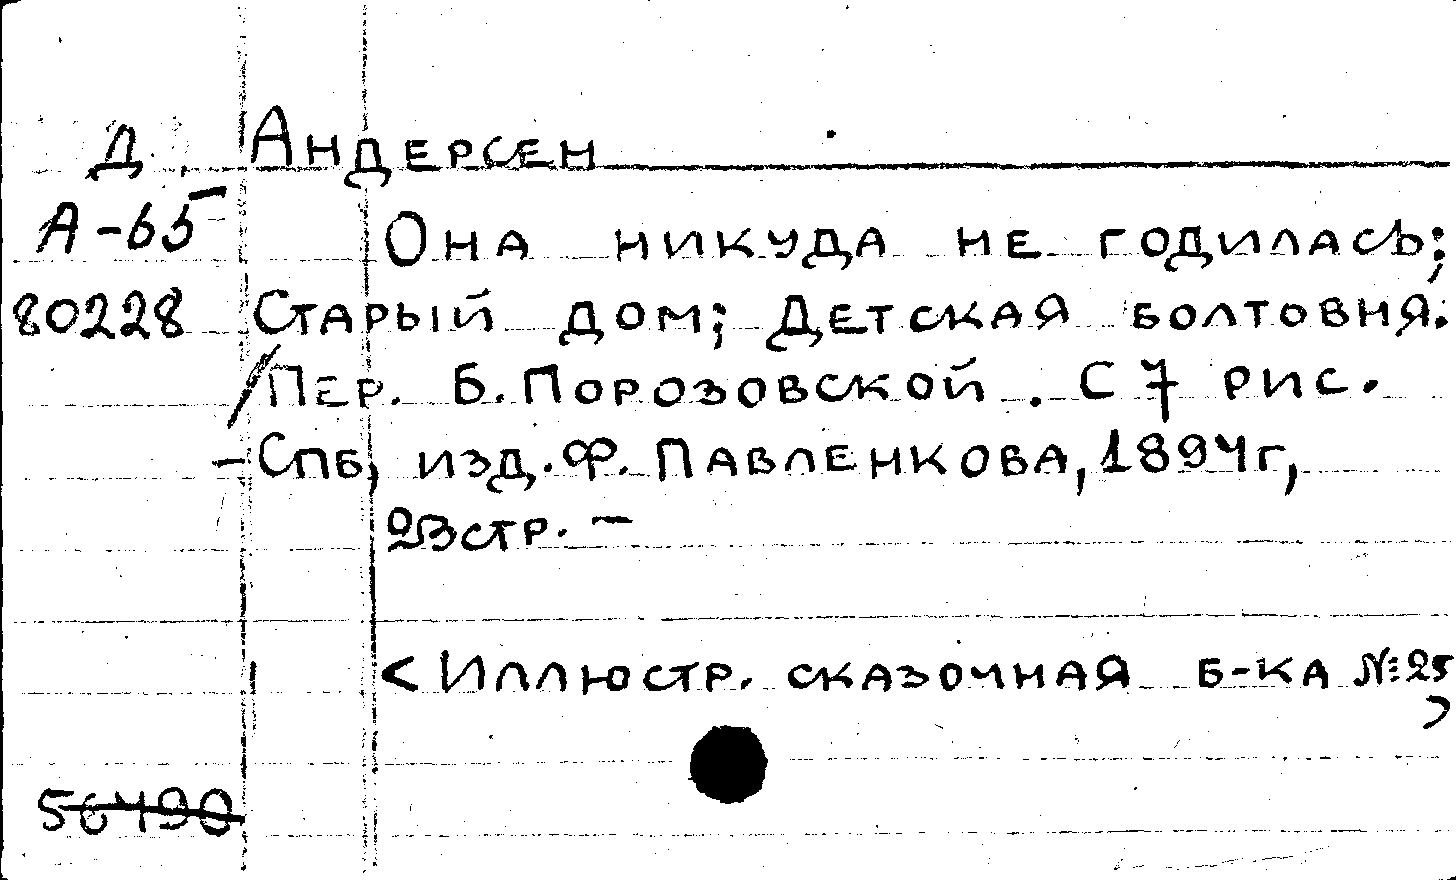 Д Андерсен
А-65 Она никуда не годилась;
80228 Старый дом; Детская болтовня.
/Пер. Б. Порозовской. С 7 рис.
–Спб, изд. Ф. Павленкова, 1894г,
23стр. –
<Иллюстр. сказочная б-ка №25>
56490